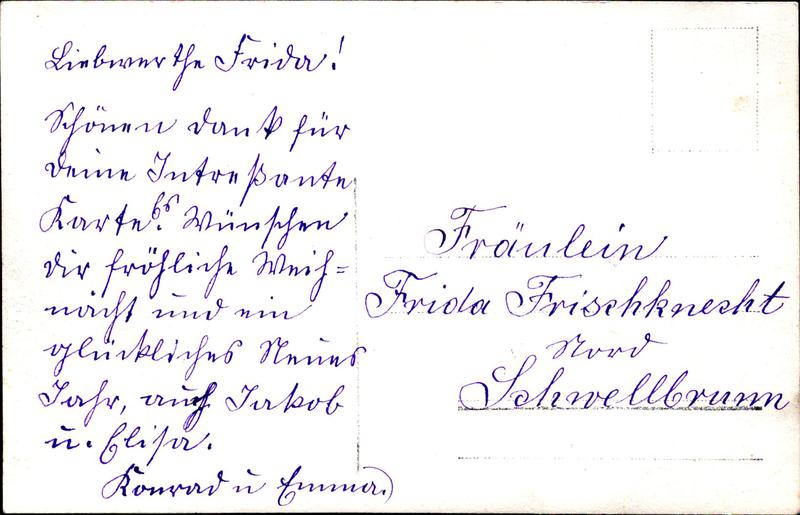 Liebwerthe Frida!
Schönen dank für
deine Intreßante
Karte. Wünschen
dir fröhliche Weih=
nacht und ein
glückliches Neues
Jahr, auch Jakob
u. Elisa.
Konrad u Emma.)
Fräulein
Frida Frischknecht
Nord
Schwellbrunn